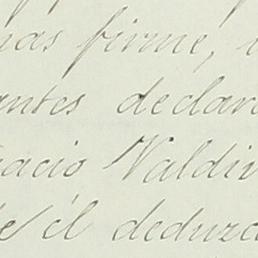 nas firme,
antes declar
nacio Valdiv
de él deduzca